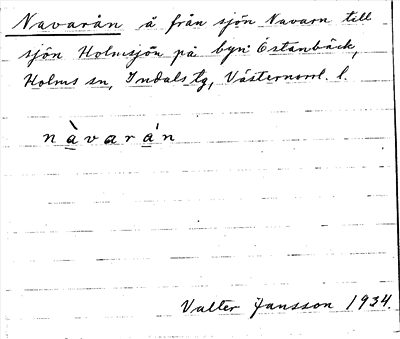 Navarån å från sjön Navarn till
sjön Holmsjön på byn Östanbäck,
Holms sn, Indals tg, Västernorrl. l.
nàvarán
Valter Jansson 1934.